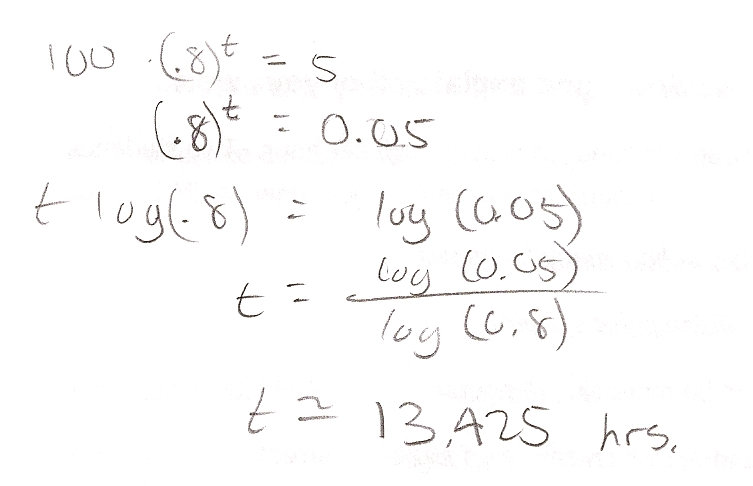 100 · (.8)^t = 5
(.8)^t = 0.05
t log(.8) = log (0.05)
t = log (0.05) / log (0.8)
t ≃ 13.425 hrs.